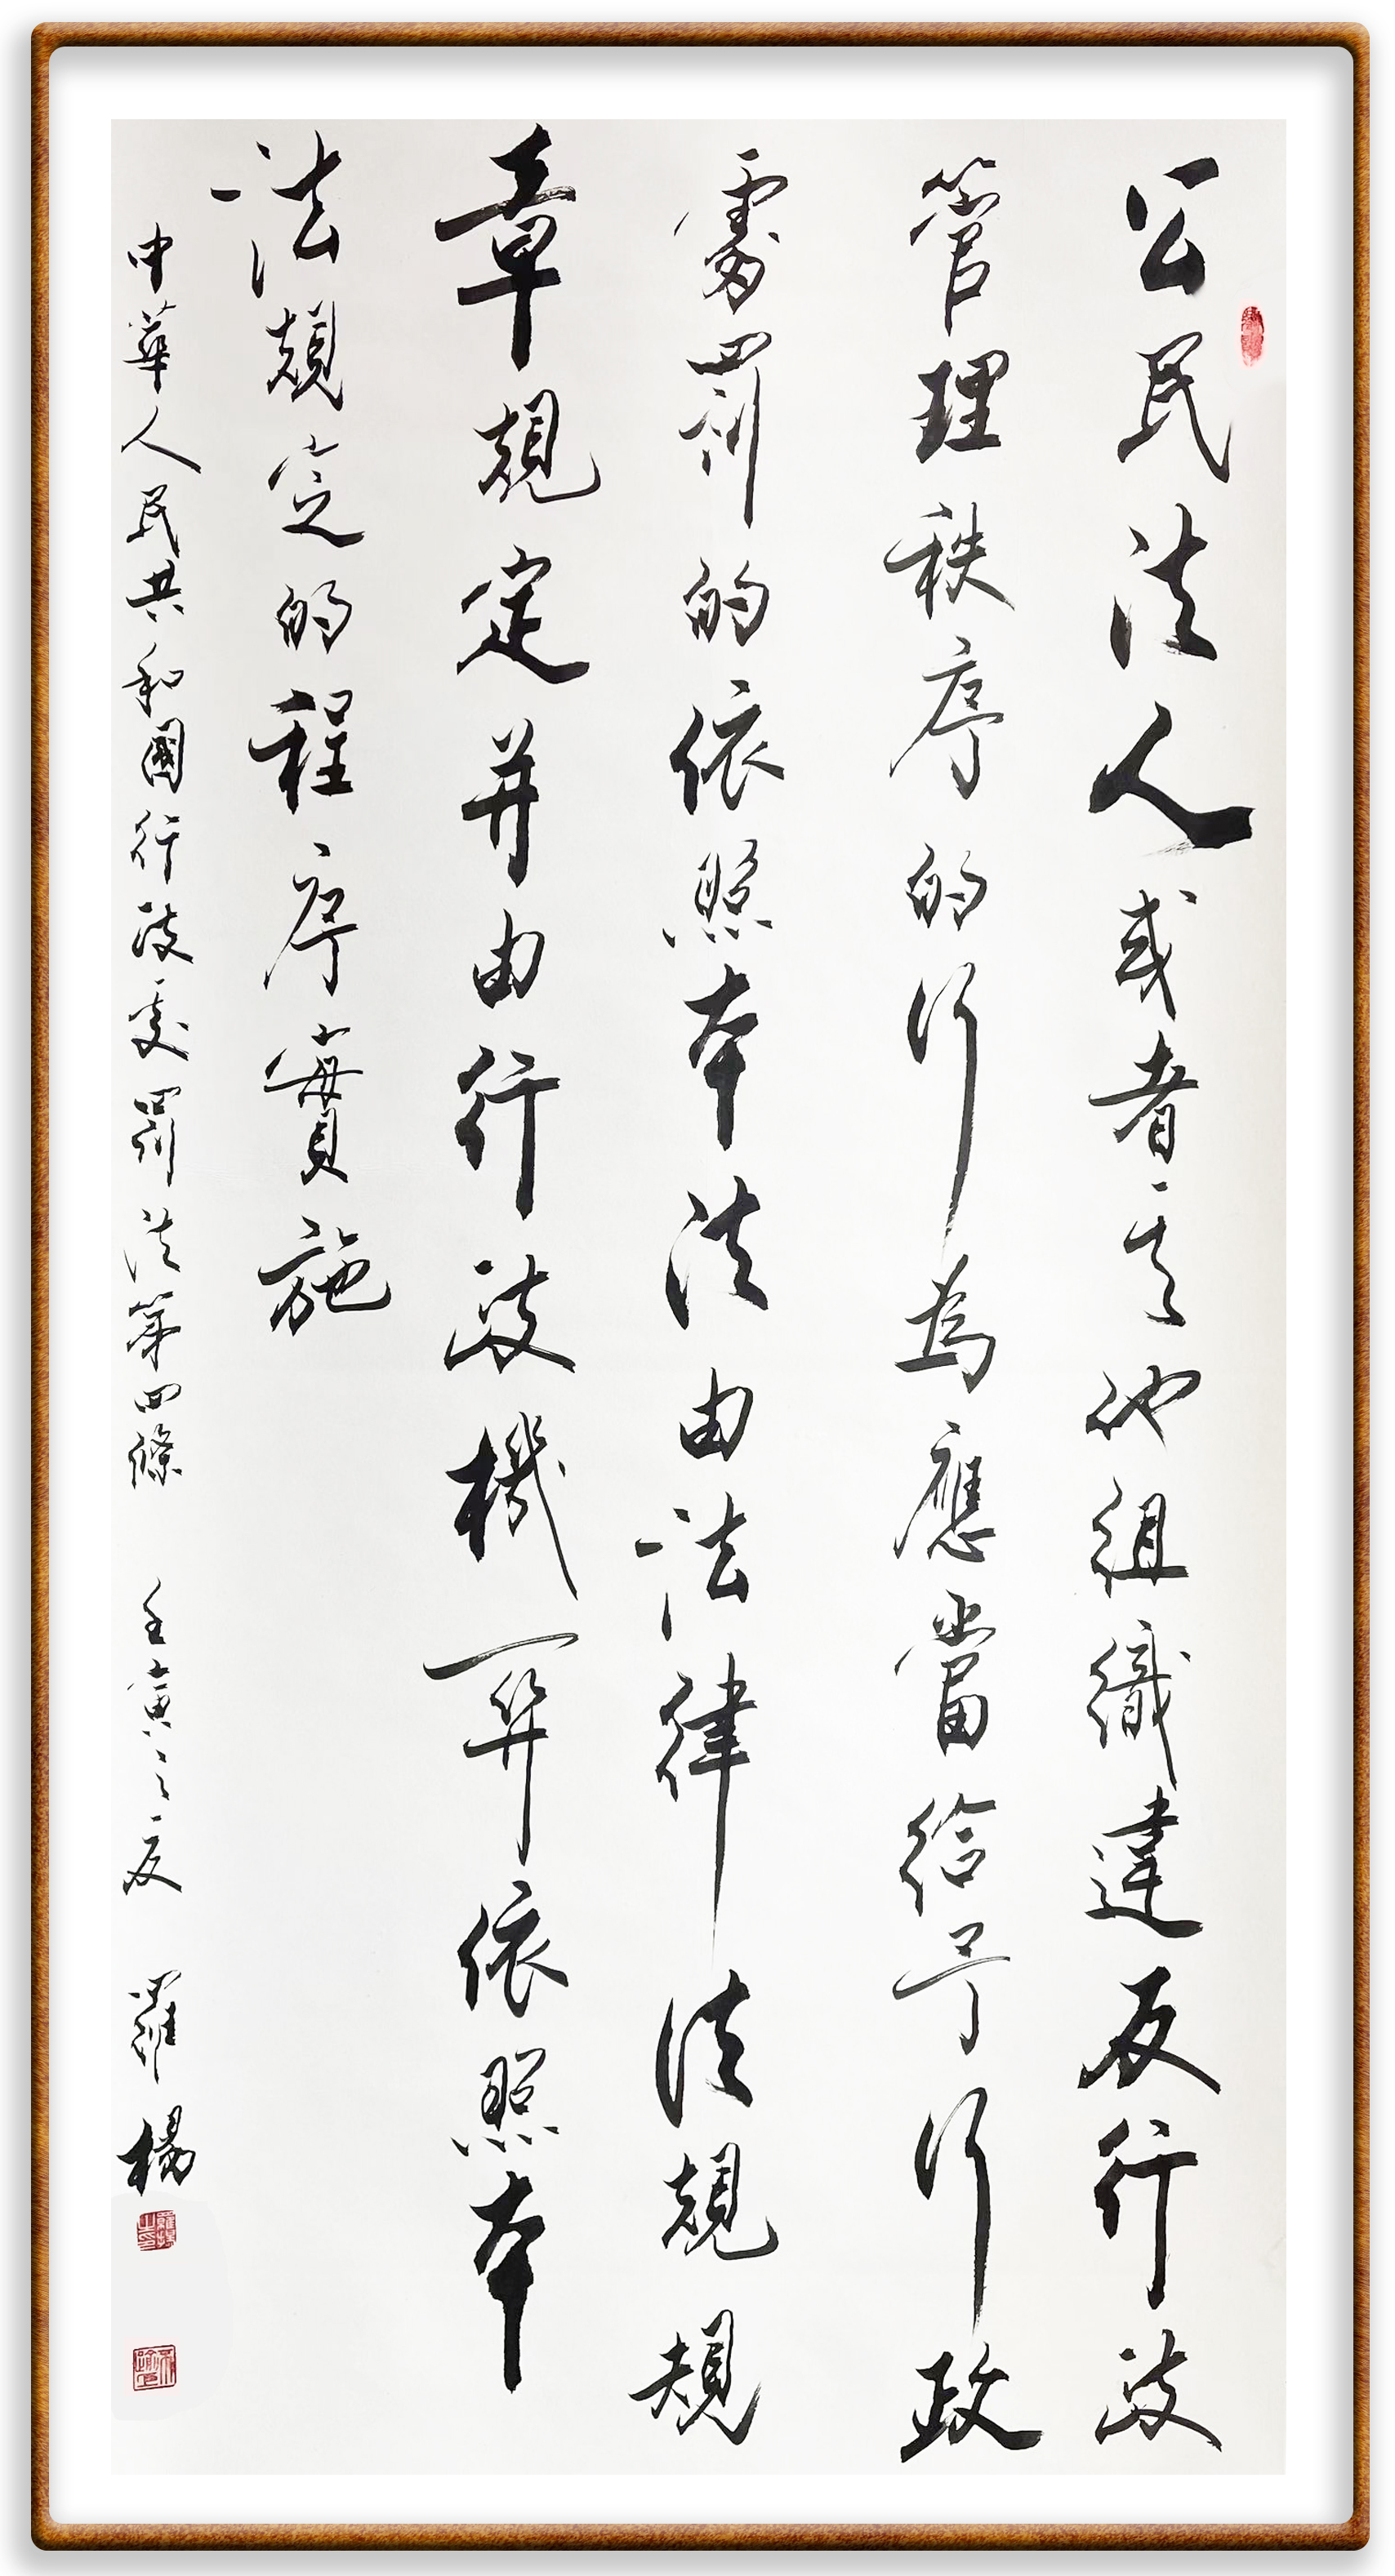 公民法人或者其他組織違反行政
管理秩序的行為應當給予行政
處罰的依照本法由法律法規規
章規定并由行政機關依照本
法規定的程序實施
中華人民共和國行政處罰法第四條 壬寅之夏 羅楊